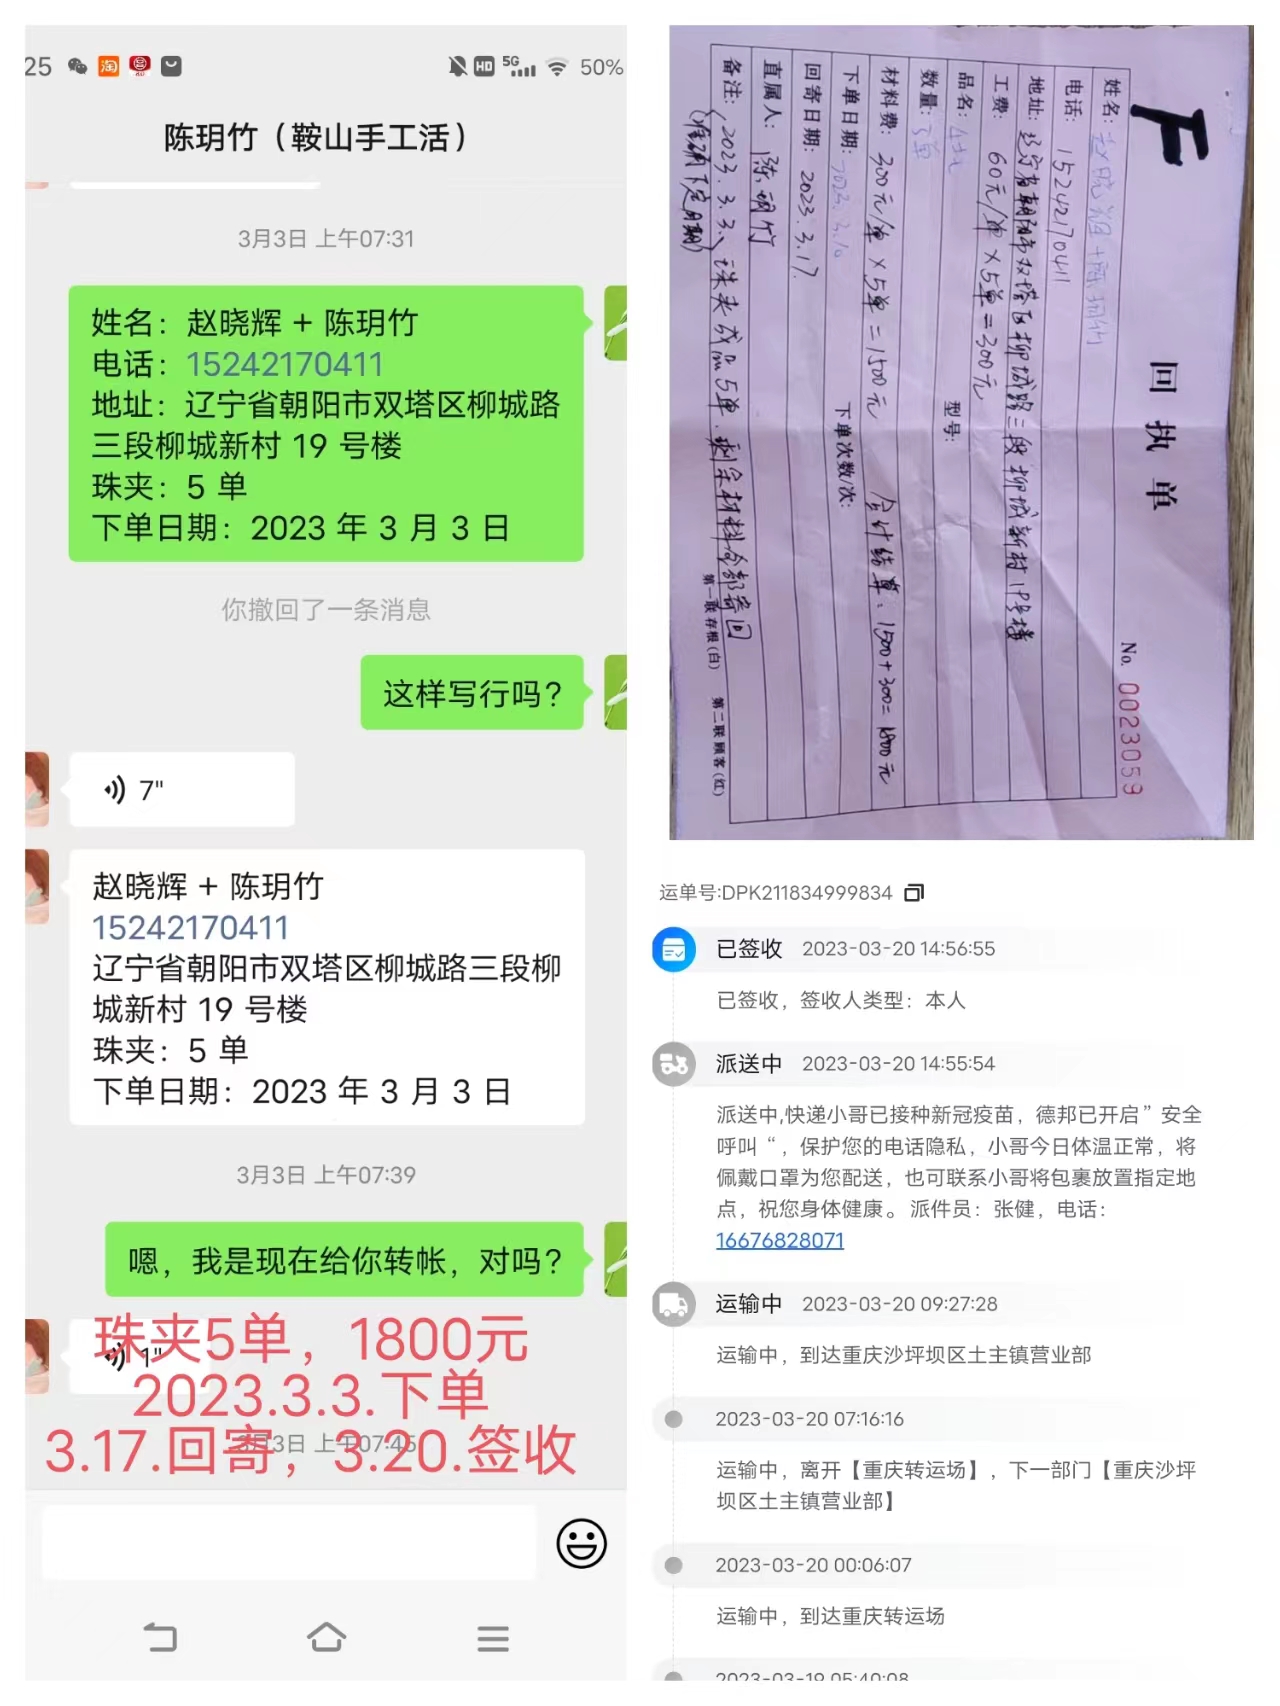 25
HD 5G 50%
陈玥竹（鞍山手工活）
3月3日 上午07:31
姓名：赵晓辉 + 陈玥竹
电话：15242170411
地址：辽宁省朝阳市双塔区柳城路
三段柳城新村 19 号楼
珠夹：5 单
下单日期：2023 年 3 月 3 日
你撤回了一条消息
这样写行吗？
7"
赵晓辉 + 陈玥竹
15242170411
辽宁省朝阳市双塔区柳城路三段柳
城新村 19 号楼
珠夹：5 单
下单日期：2023 年 3 月 3 日
3月3日 上午07:39
嗯，我是现在给你转帐，对吗？
1"
珠夹5单，1800元
2023.3.3.下单
3月3日 上午07:45
3.17.回寄，3.20.签收
F
回执单
No. 0023059
姓名：赵晓辉+陈玥竹
电话：15242170411
地址：辽宁省朝阳市双塔区柳城路三段柳城新村19号楼
工费：60元/单×5单=300元
品名： 型号：
数量：
材料费：300元/单×5单=1500元 合计结算：1500+300=1800元
下单日期：2023.3.10 下单次数/次：
回寄日期：2023.3.17.
直属人：陈玥竹
备注：2023.3.3.珠夹成品5单.剩余材料全部寄回
(准确下定日期)
第一联存根(白) 第二联顾客(红)
运单号:DPK211834999834
已签收 2023-03-20 14:56:55
已签收，签收人类型：本人
派送中 2023-03-20 14:55:54
派送中,快递小哥已接种新冠疫苗，德邦已开启”安全
呼叫“，保护您的电话隐私，小哥今日体温正常，将
佩戴口罩为您配送，也可联系小哥将包裹放置指定地
点，祝您身体健康。派件员：张健，电话：
16676828071
运输中 2023-03-20 09:27:28
运输中，到达重庆沙坪坝区土主镇营业部
2023-03-20 07:16:16
运输中，离开【重庆转运场】，下一部门【重庆沙坪
坝区土主镇营业部】
2023-03-20 00:06:07
运输中，到达重庆转运场
2023-03-19 05:40:08